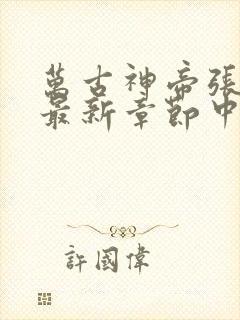 萬古神帝張
最新章節中
許國偉